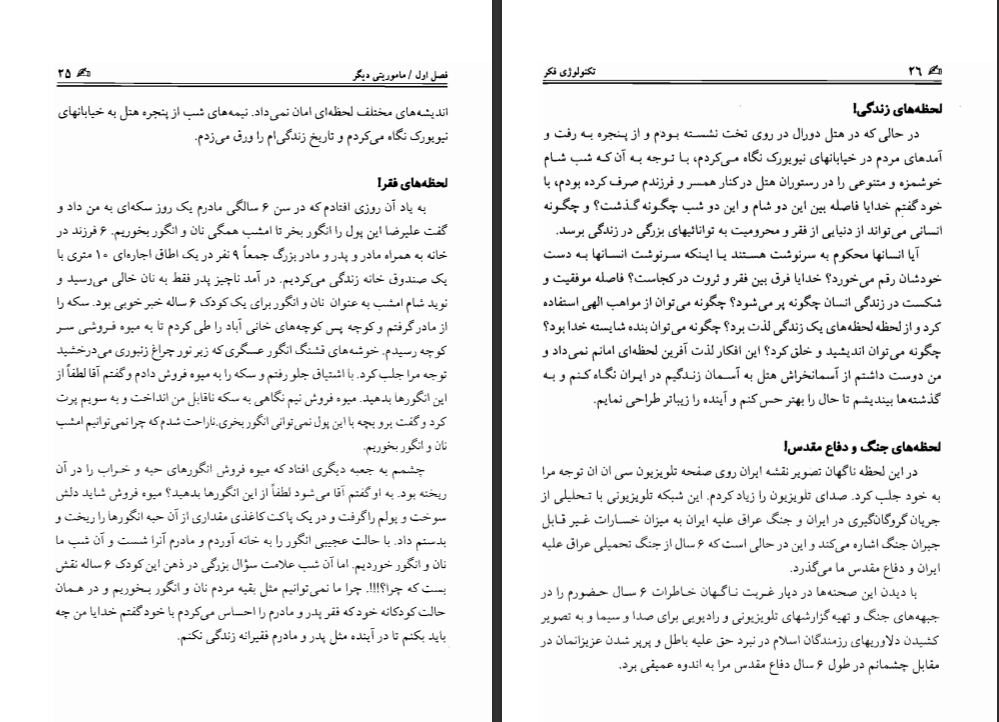 فصل اول / ماموریتی دیگر ۲۵
اندیشه‌های مختلف لحظه‌ای امان نمی‌داد. نیمه‌های شب از پنجره هتل به خیابانهای
نیویورک نگاه می‌کردم و تاریخ زندگی‌ام را ورق می‌زدم.
لحظه‌های فقر!
به یاد آن روزی افتادم که در سن ۶ سالگی مادرم یک روز سکه‌ای به من داد و
گفت علیرضا این پول را انگور بخر تا امشب همگی نان و انگور بخوریم. ۶ فرزند در
خانه به همراه مادر و پدر و مادر بزرگ جمعاً ۹ نفر در یک اطاق اجاره‌ای ۱۰ متری با
یک صندوق خانه زندگی می‌کردیم. در آمد ناچیز پدر فقط به نان خالی می‌رسید و
نوید شام امشب به عنوان نان و انگور برای یک کودک ۶ ساله خبر خوبی بود. سکه را
از مادر گرفتم و کوچه پس کوچه‌های خانی آباد را طی کردم تا به میوه فروشی سر
کوچه رسیدم. خوشه‌های قشنگ انگور عسگری که زیر نور چراغ زنبوری می‌درخشید
توجه مرا جلب کرد. با اشتیاق جلو رفتم و سکه را به میوه فروش دادم و گفتم آقا لطفاً از
این انگورها بدهید. میوه فروش نیم نگاهی به سکه ناقابل من انداخت و به سویم پرت
کرد و گفت برو بچه با این پول نمی‌توانی انگور بخری. ناراحت شدم که چرا نمی‌توانیم امشب
نان و انگور بخوریم.
چشمم به جعبه دیگری افتاد که میوه فروش انگورهای حبه و خراب را در آن
ریخته بود. به او گفتم آقا می‌شود لطفاً از این انگورها بدهید؟ میوه فروش شاید دلش
سوخت و پولم را گرفت و در یک پاکت کاغذی مقداری از آن حبه انگورها را ریخت و
بدستم داد. با حالت عجیبی انگور را به خانه آوردم و مادرم آنرا شست و آن شب ما
نان و انگور خوردیم. اما آن شب علامت سؤال بزرگی در ذهن این کودک ۶ ساله نقش
بست که چرا؟!!!. چرا ما نمی‌توانیم مثل بقیه مردم نان و انگور بخوریم و در همان
حالت کودکانه خود که فقر پدر و مادرم را احساس می‌کردم با خود گفتم خدایا من چه
باید بکنم تا در آینده مثل پدر و مادرم فقیرانه زندگی نکنم.
۲۶ تکنولوژی فکر
لحظه‌های زندگی!
در حالی که در هتل دورال در روی تخت نشسته بودم و از پنجره به رفت و
آمدهای مردم در خیابانهای نیویورک نگاه می‌کردم، با توجه به آن که شب شام
خوشمزه و متنوعی را در رستوران هتل در کنار همسر و فرزندم صرف کرده بودم، با
خود گفتم خدایا فاصله بین این دو شام و این دو شب چگونه گذشت؟ و چگونه
انسانی می‌تواند از دنیایی از فقر و محرومیت به توانائیهای بزرگی در زندگی برسد.
آیا انسانها محکوم به سرنوشت هستند یا اینکه سرنوشت انسانها به دست
خودشان رقم می‌خورد؟ خدایا فرق بین فقر و ثروت در کجاست؟ فاصله موفقیت و
شکست در زندگی انسان چگونه پر می‌شود؟ چگونه می‌توان از مواهب الهی استفاده
کرد و از لحظه لحظه‌های یک زندگی لذت برد؟ چگونه می‌توان بنده شایسته خدا بود؟
چگونه می‌توان اندیشید و خلق کرد؟ این افکار لذت آفرین لحظه‌ای امانم نمی‌داد و
من دوست داشتم از آسمانخراش هتل به آسمان زندگیم در ایران نگاه کنم و به
گذشته‌ها بیندیشم تا حال را بهتر حس کنم و آینده را زیباتر طراحی نمایم.
لحظه‌های جنگ و دفاع مقدس!
در این لحظه ناگهان تصویر نقشه ایران روی صفحه تلویزیون سی ان ان توجه مرا
به خود جلب کرد. صدای تلویزیون را زیاد کردم. این شبکه تلویزیونی با تحلیلی از
جریان گروگان‌گیری در ایران و جنگ عراق علیه ایران به میزان خسارات غیر قابل
جبران جنگ اشاره می‌کند و این در حالی است که ۶ سال از جنگ تحمیلی عراق علیه
ایران و دفاع مقدس ما می‌گذرد.
با دیدن این صحنه‌ها در دیار غربت ناگهان خاطرات ۶ سال حضورم را در
جبهه‌های جنگ و تهیه گزارشهای تلویزیونی و رادیویی برای صدا و سیما و به تصویر
کشیدن دلاوریهای رزمندگان اسلام در نبرد حق علیه باطل و پرپر شدن عزیزانمان در
مقابل چشمانم در طول ۶ سال دفاع مقدس مرا به اندوه عمیقی برد.